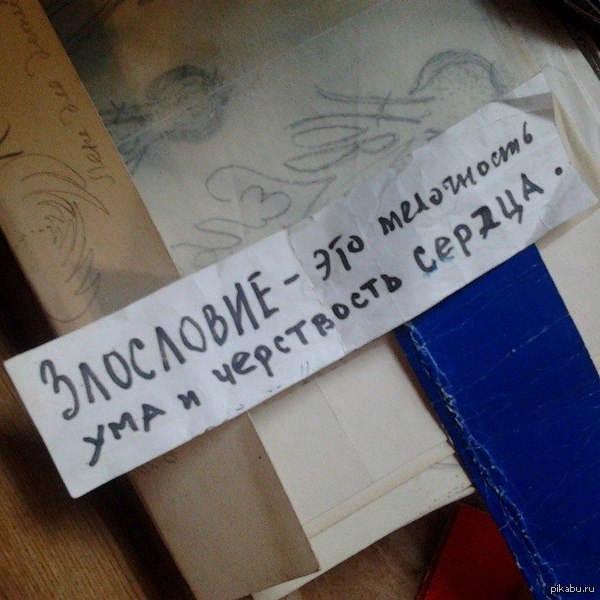 ЗЛОСЛОВИЕ - это мелочность
ума и черствость СЕРДЦА.
pikabu.ru